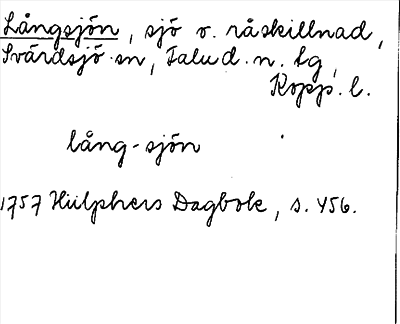 Långsjön, sjö o. råskillnad,
Svärdsjö sn, Falu d. n. tg,
Kopp. l.
lång-sjön
1757 Hülphers Dagbok, s. 456.